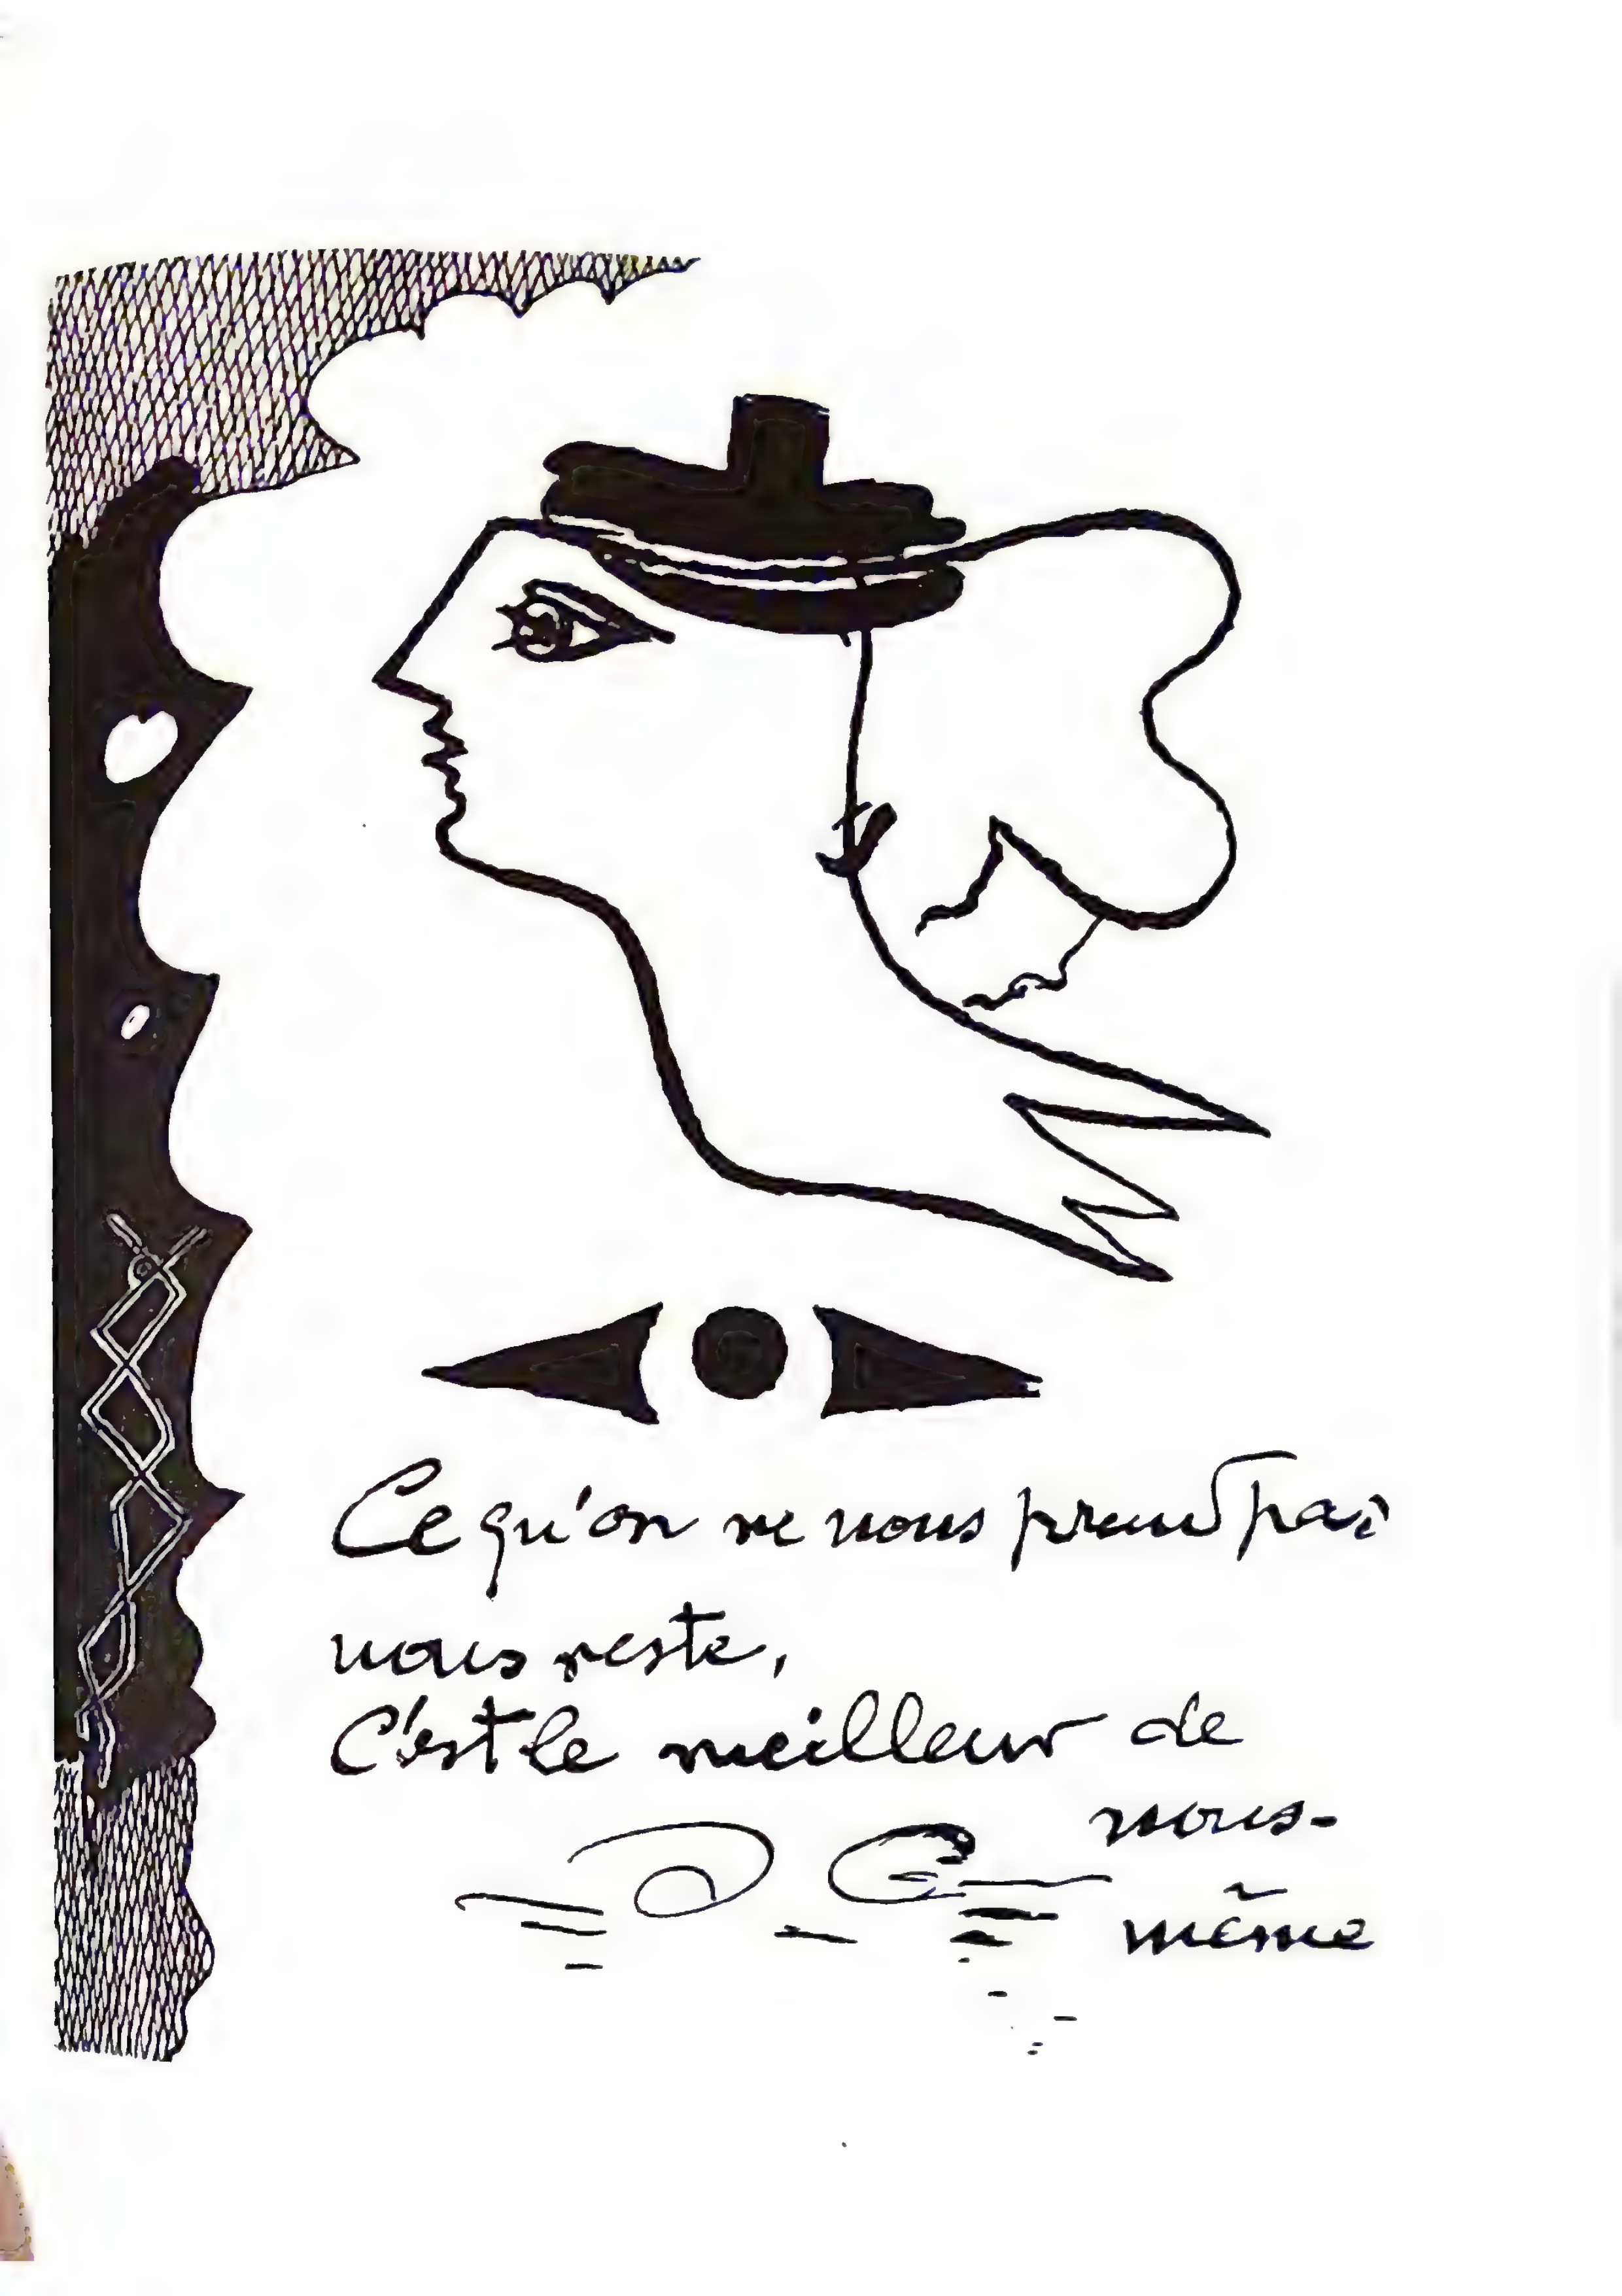 Ce qu'on ne nous prend pas
nous reste,
C'est le meilleur de
nous-
même